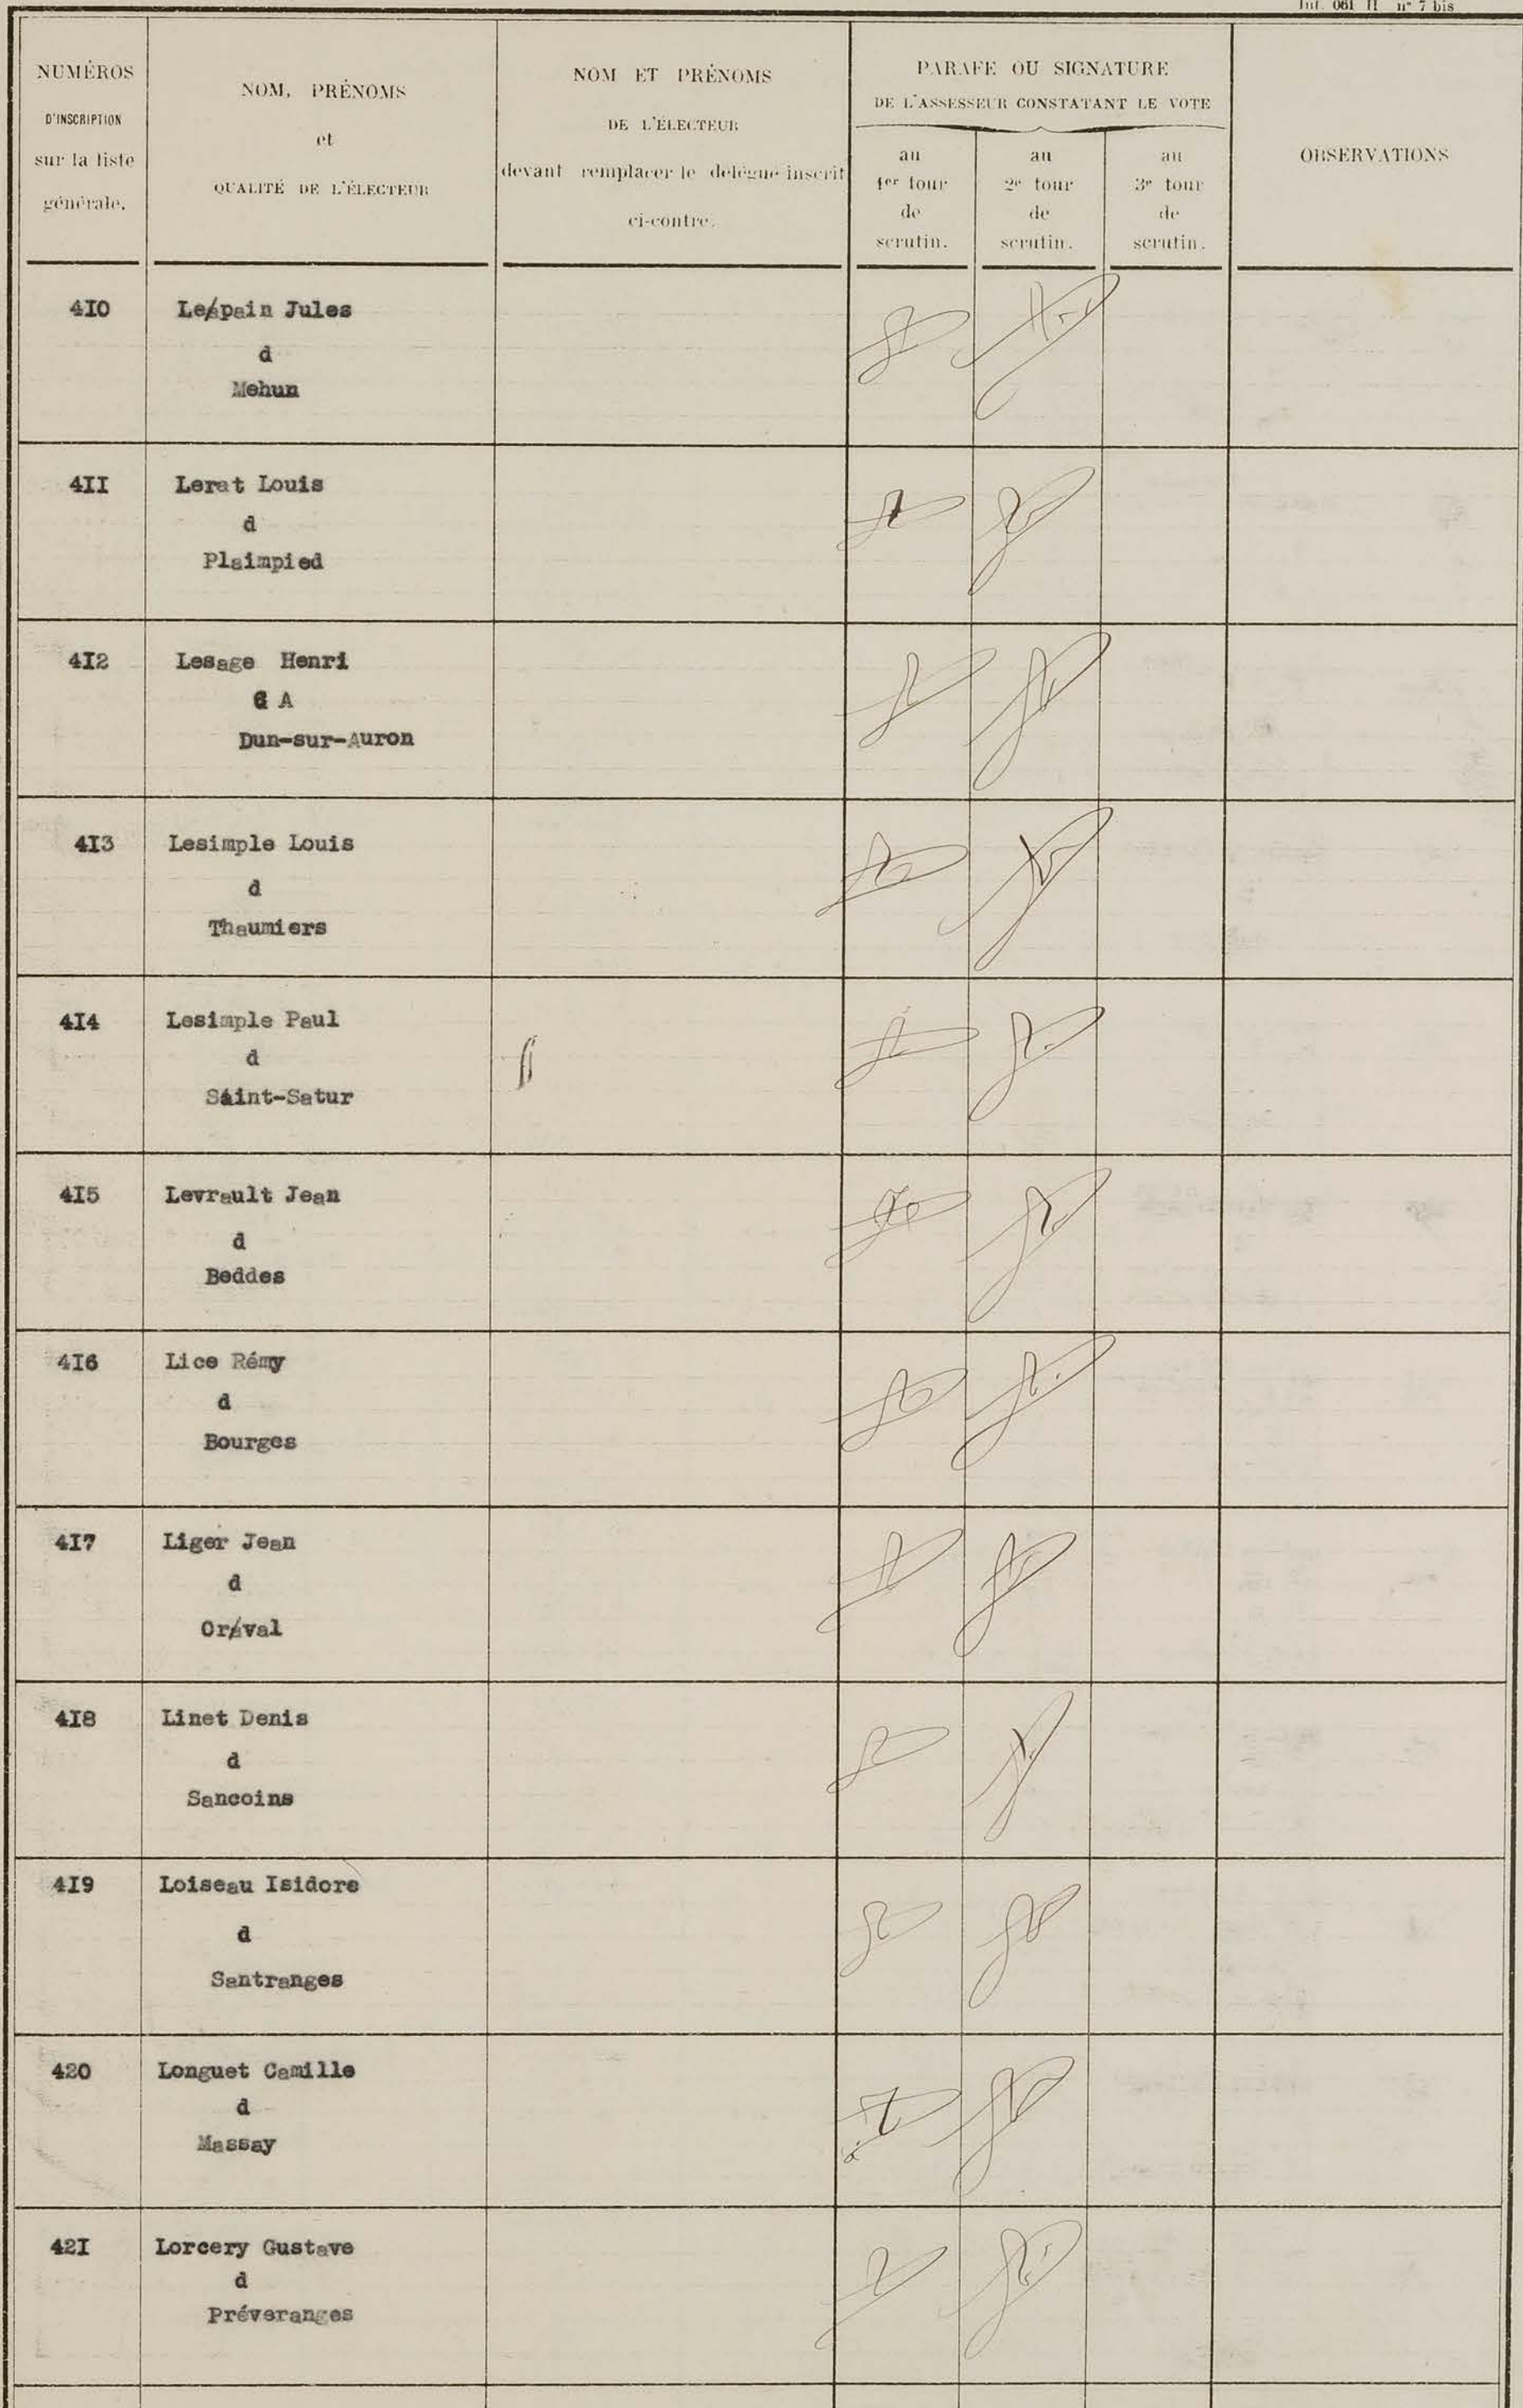 Int. 061 II n° 7 bis
NUMÉROS
D'INSCRIPTION
sur la liste
générale.
NOM, PRÉNOMS
et
QUALITÉ DE L'ÉLECTEUR
NOM ET PRÉNOMS
DE L'ÉLECTEUR
devant remplacer le délégué inscrit
ci-contre.
PARAFE OU SIGNATURE
DE L'ASSESSEUR CONSTATANT LE VOTE
au
1er tour
de
scrutin.
au
2e tour
de
scrutin.
au
3e tour
de
scrutin.
OBSERVATIONS
4I0 Le/pain Jules
d
Mehun
4II Lerat Louis
d
Plaimpied
4I2 Lesage Henri
A
Dun-sur-Auron
4I3 Lesimple Louis
d
Thaumiers
4I4 Lesimple Paul
d
Saint-Satur
4I5 Levrault Jean
d
Beddes
4I6 Lice Rémy
d
Bourges
4I7 Liger Jean
d
Or/val
4I8 Linet Denis
d
Sancoins
4I9 Loiseau Isidore
d
Santranges
420 Longuet Camille
d
Massay
42I Lorcery Gustave
d
Préveranges